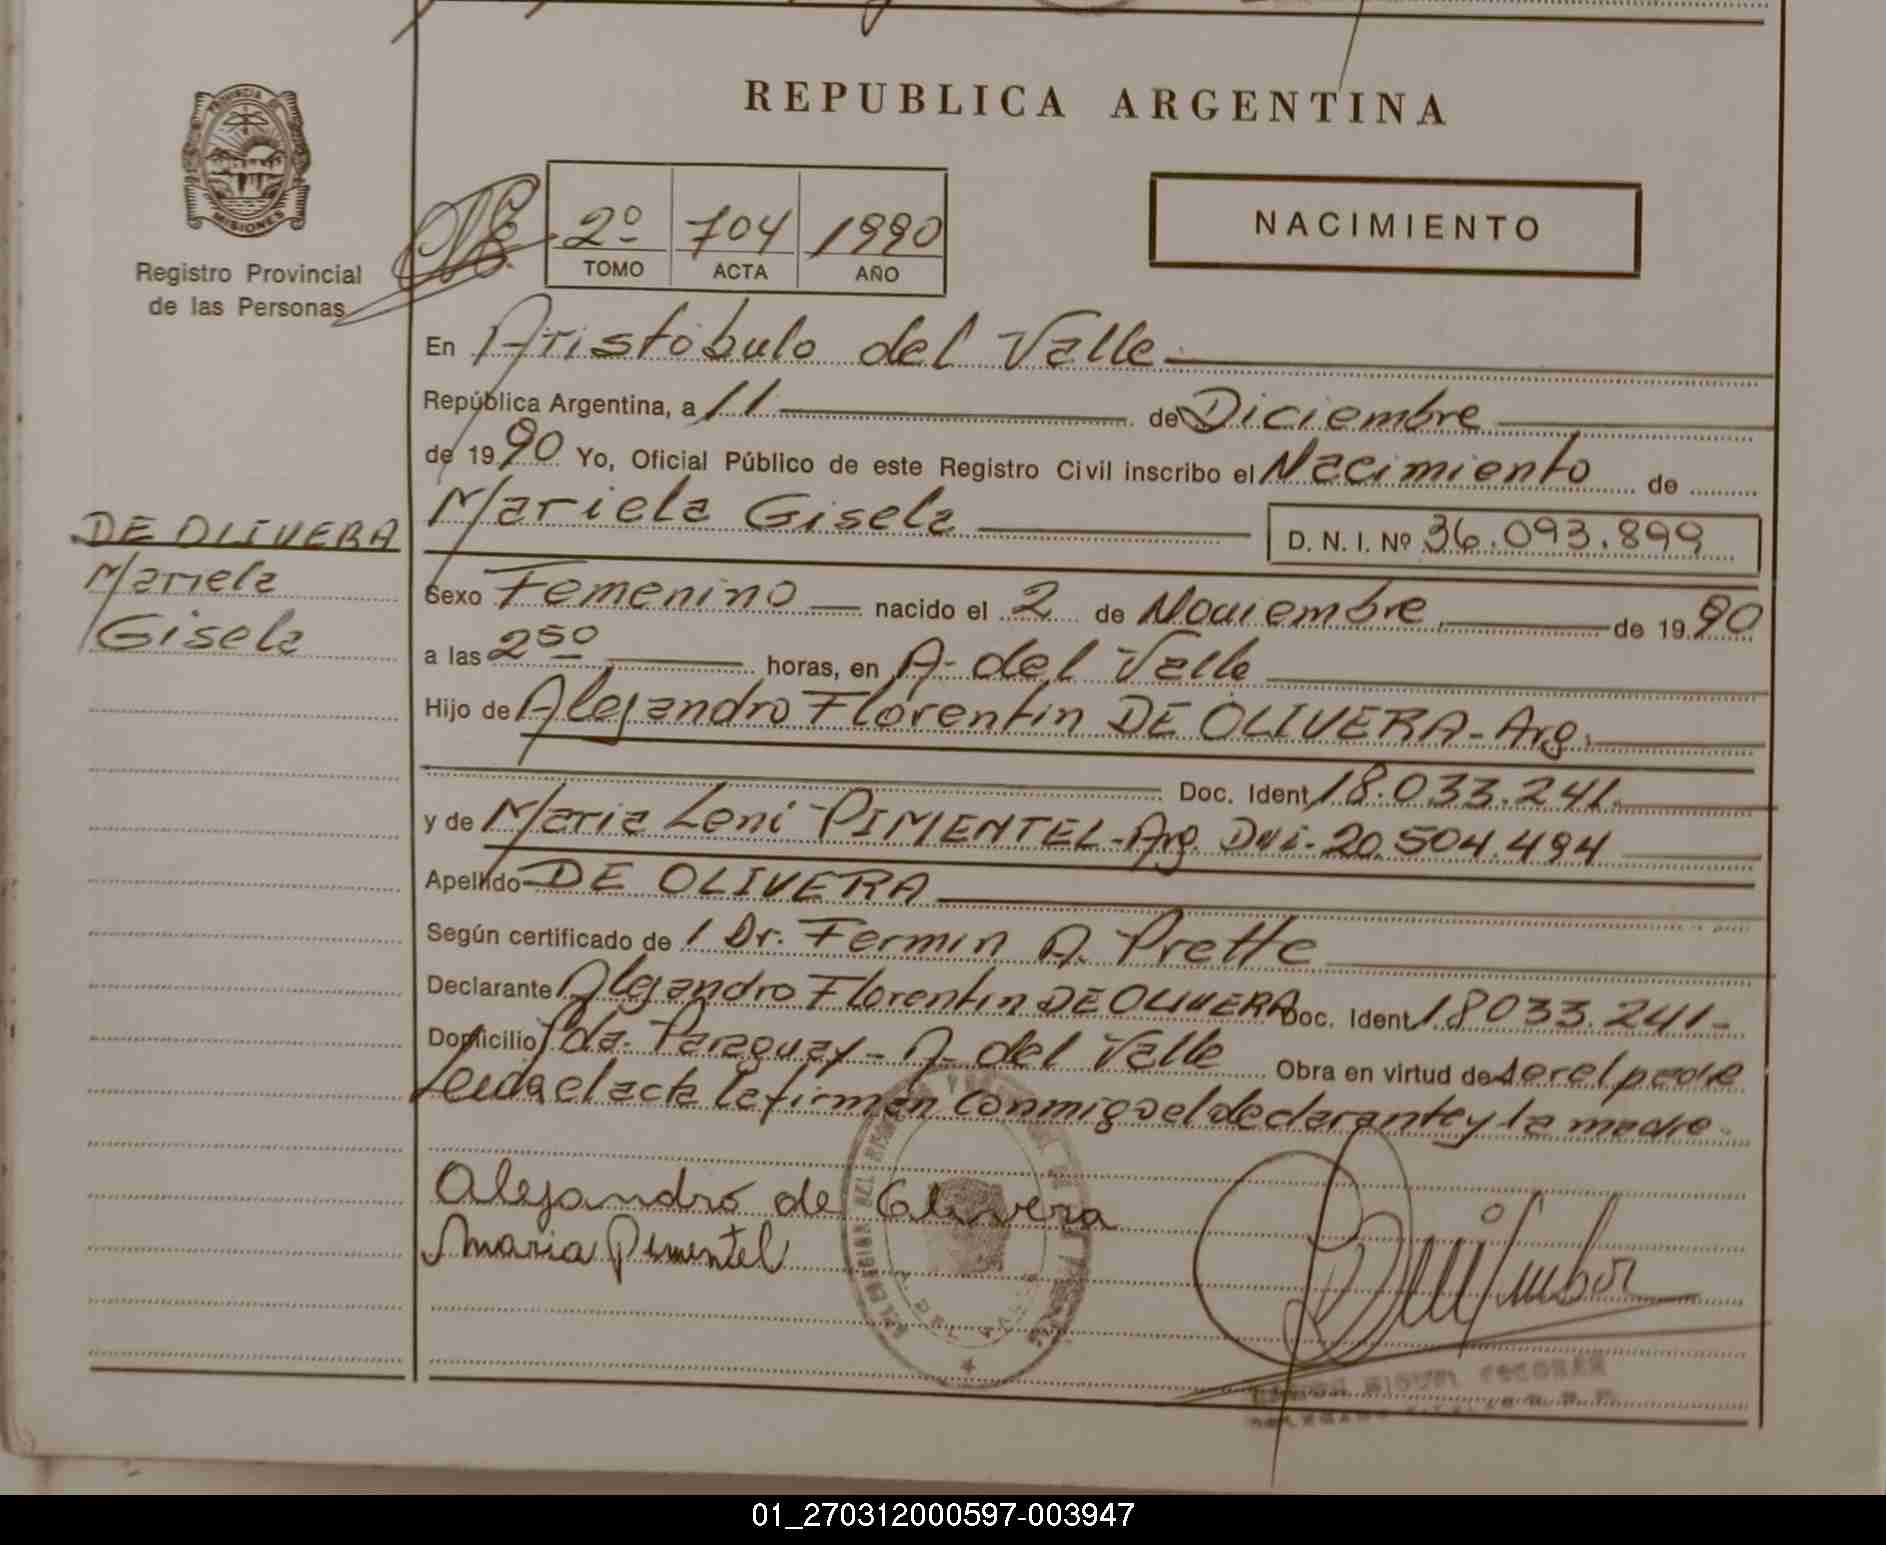 REPUBLICA ARGENTINA
PROVINCIA DE
MISIONES
Registro Provincial
de las Personas
2º 704 1990
TOMO ACTA AÑO
NACIMIENTO
En Aristóbulo del Valle
República Argentina, a 11 de Diciembre
de 1990 Yo, Oficial Público de este Registro Civil inscribo el Nacimiento de
Mariela Gisela D. N. I. Nº 36.093.899
DE OLIVERA
Mariela
Gisela
Sexo Femenino nacido el 2 de Noviembre de 1990
a las 2⁵⁰ horas, en A. del Valle
Hijo de Alejandro Florentin DE OLIVERA - Arg.
Doc. Ident 18.033.241.
y de Maria Leni PIMENTEL - Arg. Dni - 20.504.494
Apellido DE OLIVERA
Según certificado de 1 Dr. Fermin A. Prette
Declarante Alejandro Florentin DE OLIVERA Doc. Ident 18033.241-
Domicilio Pda. Paraguay - A. del Valle Obra en virtud de ser el padre
Leida el acta la firman conmigo el declarante y la madre.
Alejandro de Olivera
Maria Pimentel
MIGUEL ESCOBAR
01_270312000597-003947